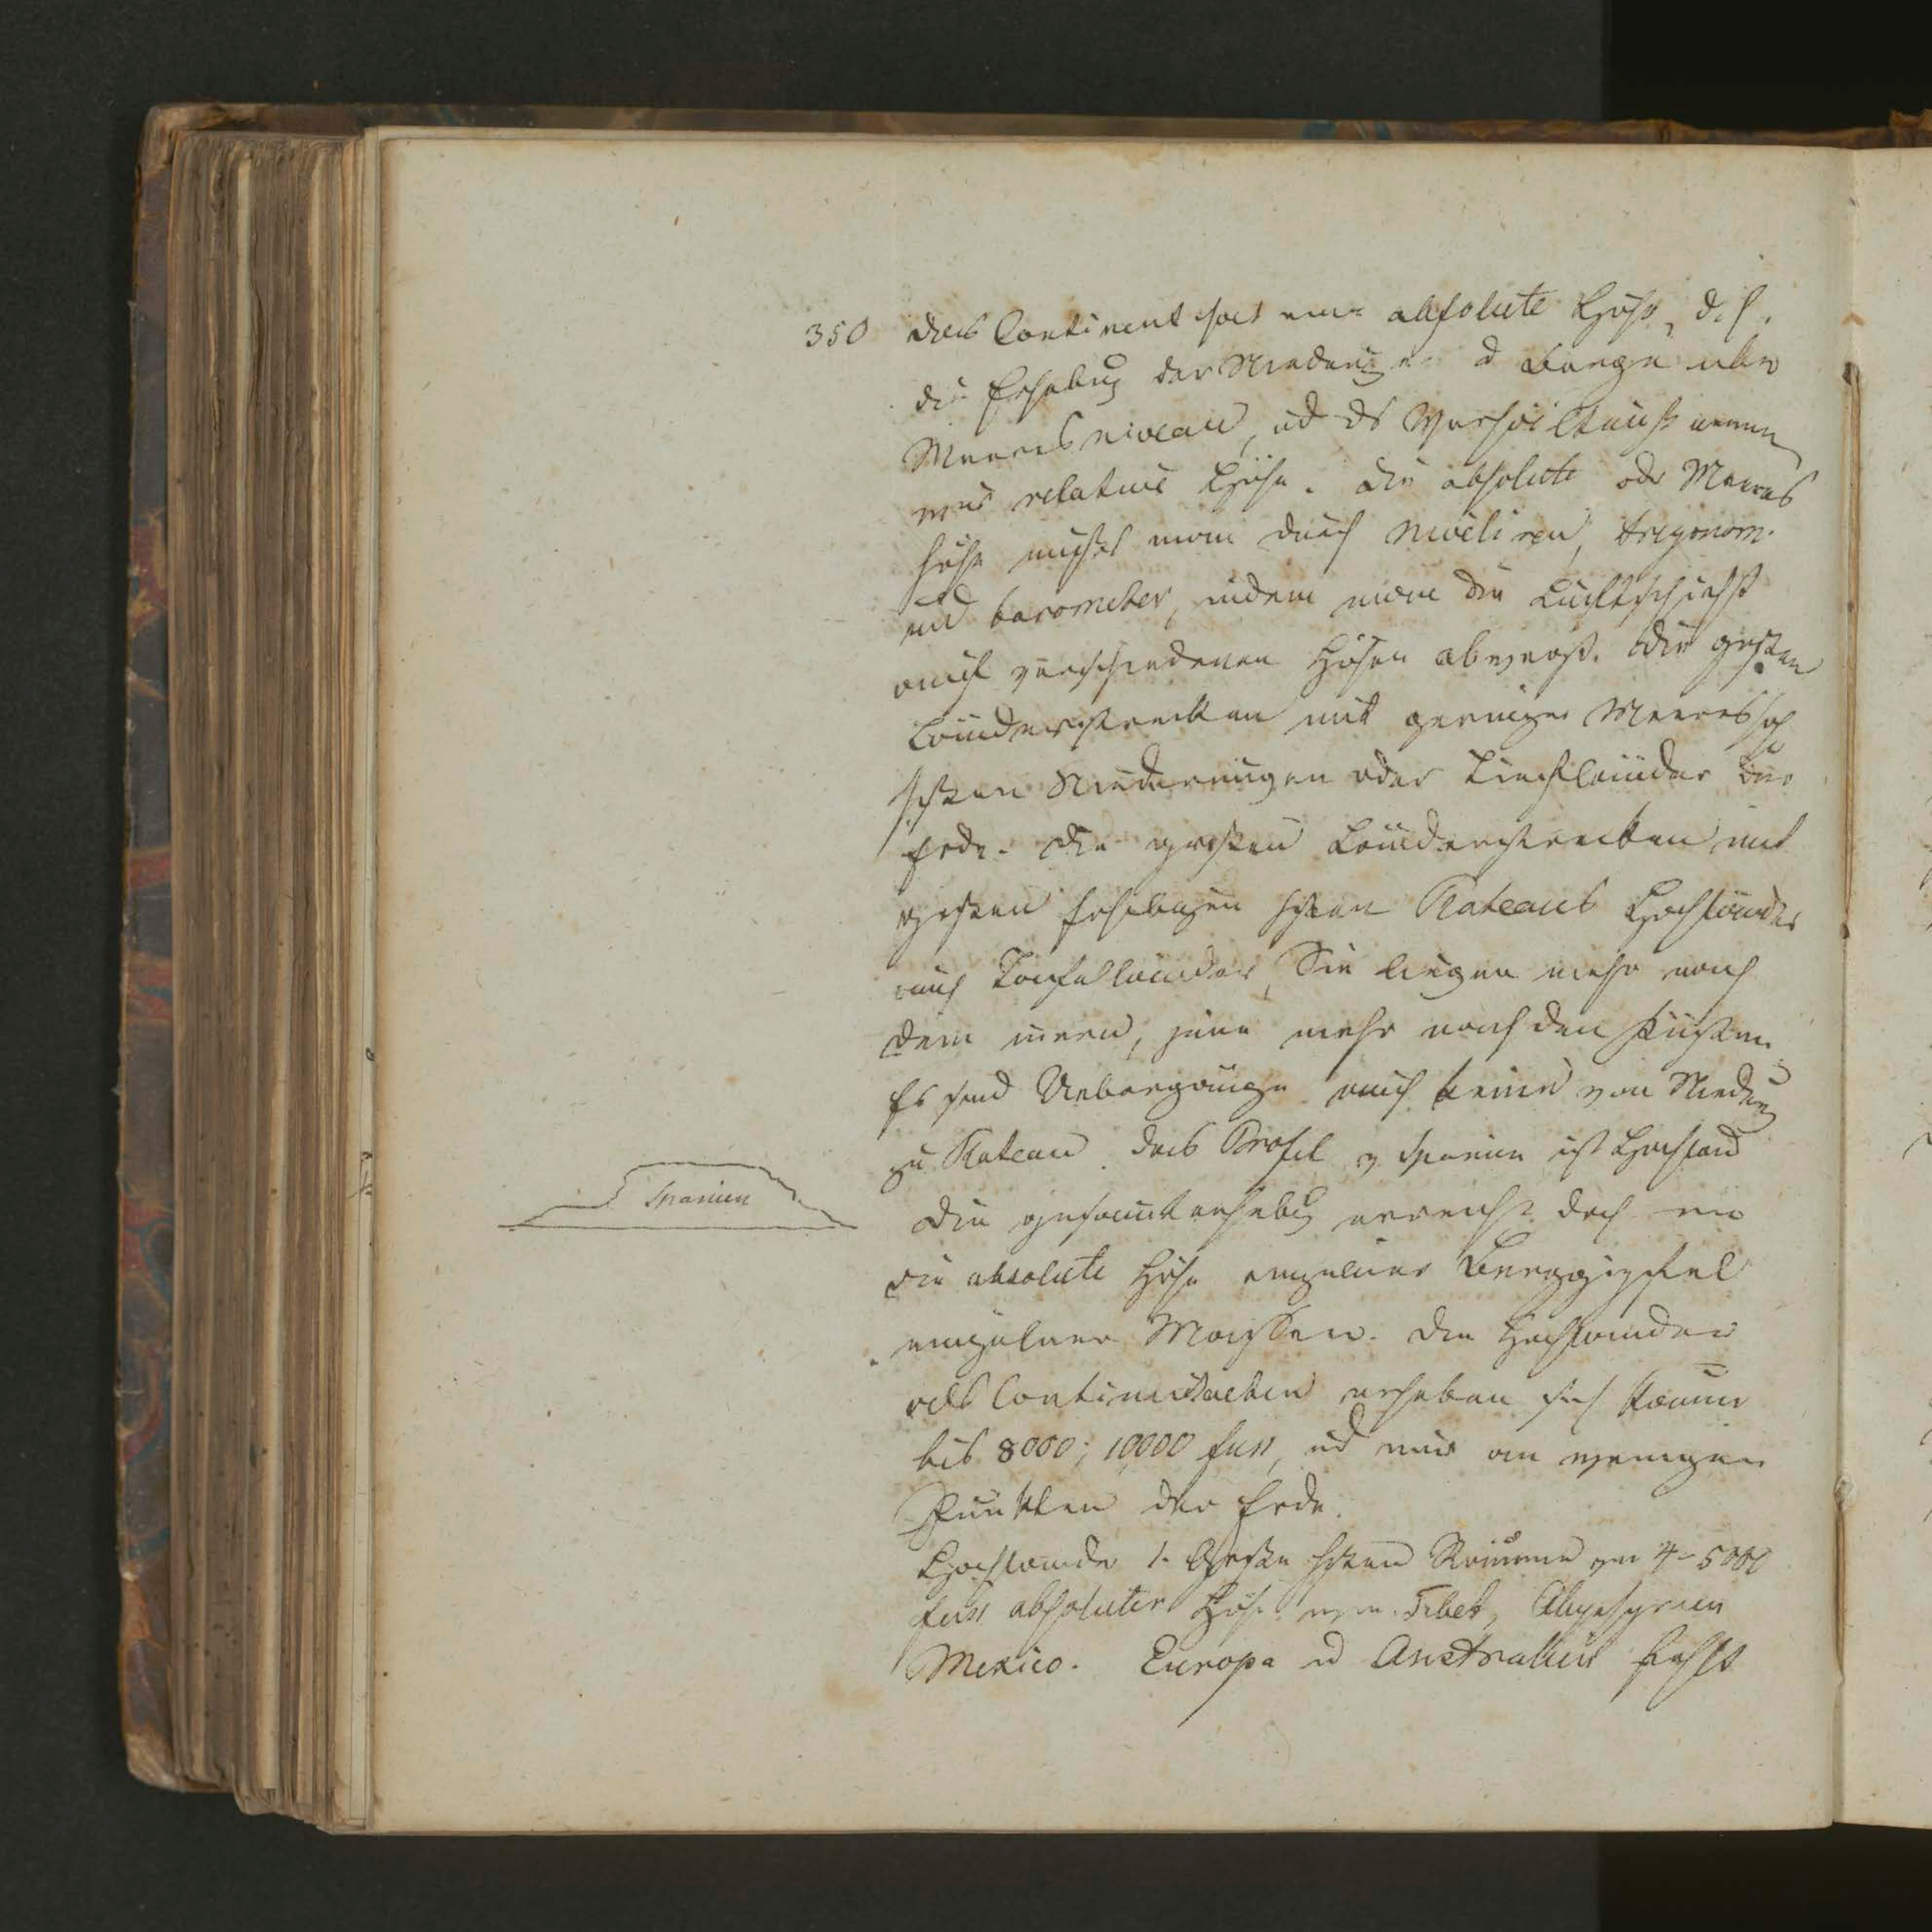 350 Das Continent hat eine absolute Höhe, d. h.
die Erhebung der Niederungen u Berge über
Meeresniveau, und ds Verhältniß nennen
wir relative Höhe. Die absolute oder Meeres
höhe mißt man durch Niveliren, trigonom.
und barometer, indem man die Luftschicht
auf verschiedenen Höhen abwägt. Die großen
Länderstrecken mit geringer Meereshöhe
heißen Niederungen oder Tiefländer der
Erde. Die großen Länderstrecken mit
großen Erhebungen heißen Plateaus Hochländer
auch Tafelländer, Sie liegen mehr nach
dem innern, jene mehr nach den Küsten.
Es sind Uebergänge auch keine von Niederung
zu Plateau. Das Profil v Spanien ist Hochland
Spanien
Die gesammterhebung erreicht doch nie
die absolute Höhe einzelner Berggipfel
einzelner Massen. Die Hochländer
als erheben sich kaum
bis 8000; 10,000 fuss, und nur an wenigen
Punkten der Erde.
Hochländer 1. Größe heißen Räume von 4-5000
fuss absoluter Höhe wie Tibet, Abyssynien
Mexico. Europa u Australien fehlt